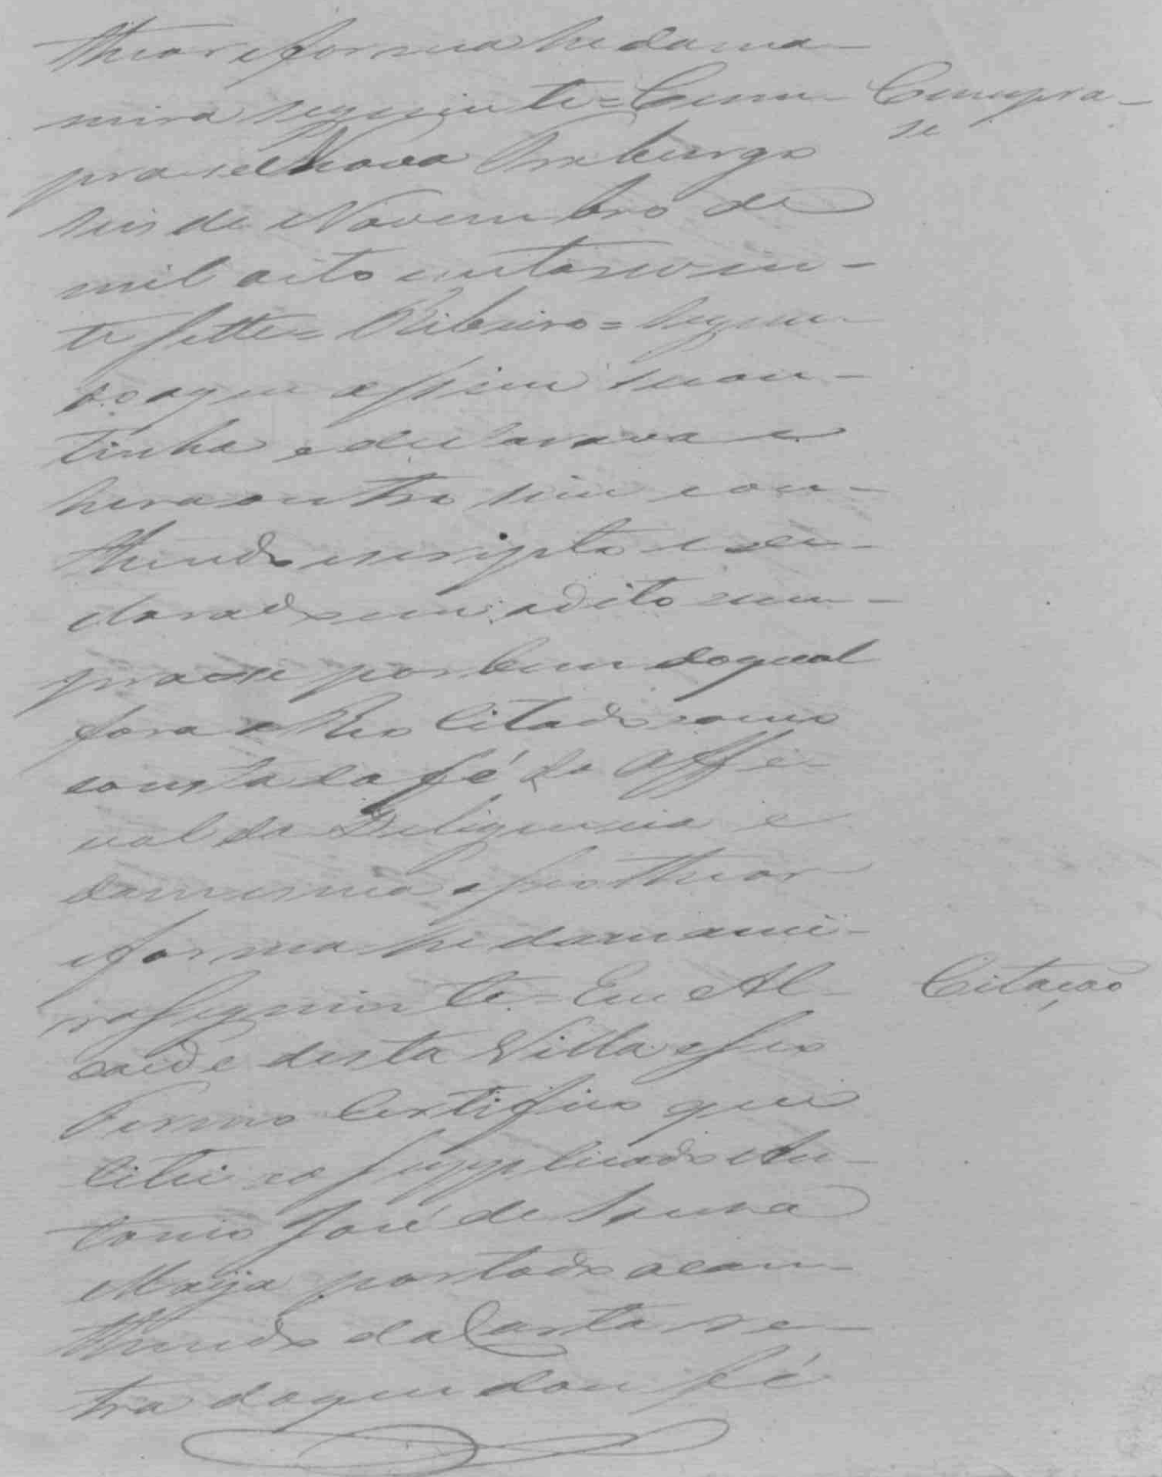 theor e forma he da ma-
neira seguinte = Cum- Cumpra-
pra-se Nova Friburgo se
seis de Novembro de
mil oito centos e vin-
te sette = Ribeiro = Segun-
do o que assim se con-
tinha e declarava e
hera outro sim con-
theudo escripto e de-
clarado em o dito cum-
pra-se por bem do qual
fora o Reo Citado como
consta da fé do Offi-
cial da Deligencia e
da mesma o seo theor
e forma he da manei-
ra seguinte = Eu Al- Citação
caide desta Villa e seo
Termo Certifico que
Citei ao supplicado An-
tonio José de Souza
Maya por todo o con-
theudo da Carta re-
tra do que dou fé